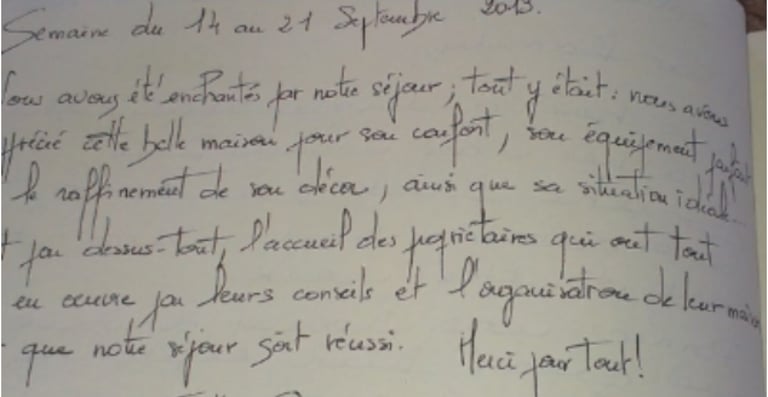 Semaine du 14 au 21 Septembre 2013.
Nous avons été enchantés par notre séjour ; tout y était : nous avons
apprécié cette belle maison pour son confort, son équipement parfait
le raffinement de son décor, ainsi que sa situation idéale...
Et par dessus-tout, l'accueil des propriétaires qui ont tout
en œuvre par leurs conseils et l'organisation de leur maison
que notre séjour soit réussi. Merci pour Tout!